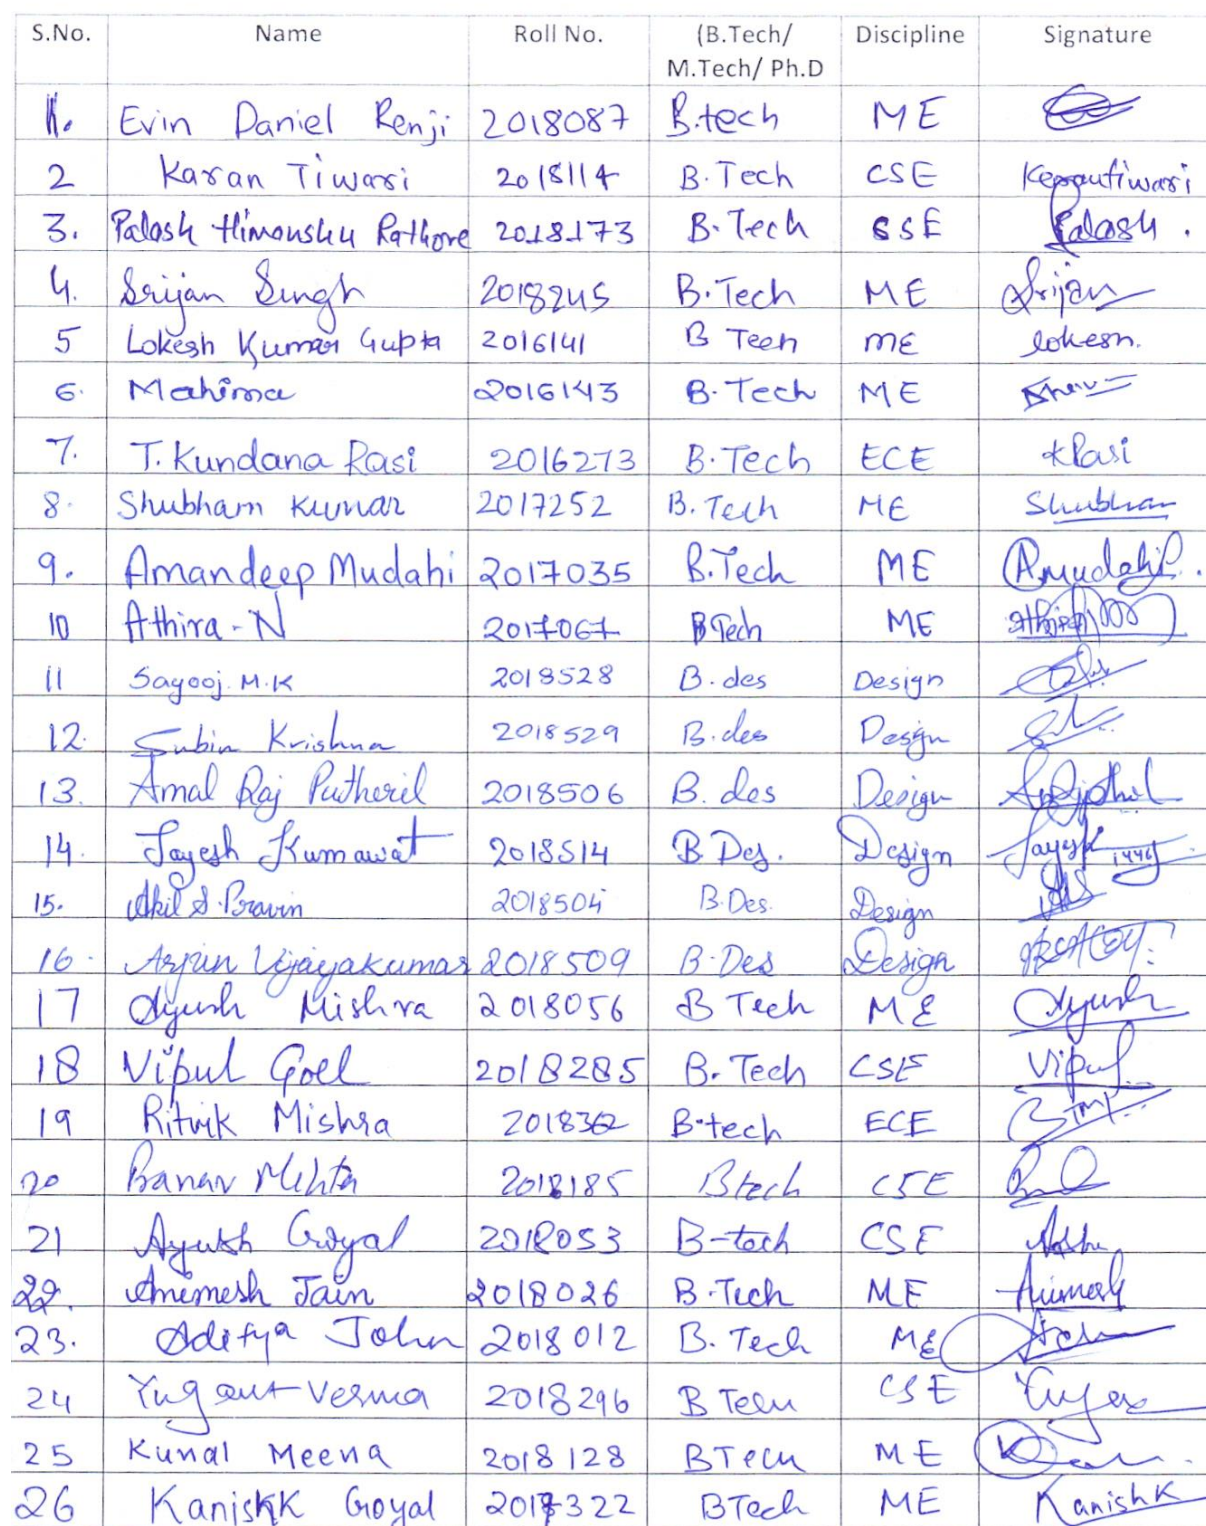 S.No. Name Roll No. (B.Tech/ M.Tech/ Ph.D Discipline Signature
1. Evin Daniel Renji 2018087 B.tech ME
2 Karan Tiwari 2018114 B.Tech CSE Karantiwari
3. Palash Himanshu Rathore 2018173 B.Tech CSE Palash.
4. Srijan Singh 2018245 B.Tech ME Srijan
5 Lokesh Kumar Gupta 2016141 B Tech ME lokesh.
6. Mahima 2016143 B.Tech ME
7. T. Kundana Rasi 2016273 B.Tech ECE kRasi
8. Shubham Kumar 2017252 B.Tech ME Shubham
9. Amandeep Mudahi 2017035 B.Tech ME
10 Athira-N 2017067 B Tech ME
11 Sayooj. M.K 2018528 B.des Design
12. Subin Krishna 2018529 B.des Design
13. Amal Raj Putheril 2018506 B. des Design
14. Jayesh Kumawat 2018514 B Des. Design Jayesh
15. Akil S. Pravin 2018504 B.Des. Design
16. Arjun Vijayakumar 2018509 B.Des Design
17 Ayush Mishra 2018056 B Tech ME Ayush
18 Vipul Goel 2018285 B. Tech CSE Vipul
19 Ritvik Mishra 2018362 B.tech ECE
20 Pranav Mehta 2018185 Btech CSE
21 Ayush Goyal 2018053 B-tech CSE
22. Animesh Jain 2018026 B.Tech ME Animesh
23. Aditya John 2018012 B. Tech ME
24 Yugant Verma 2018296 B Tech CSE
25 Kunal Meena 2018128 BTech ME
26 Kanishk Goyal 2017322 BTech ME Kanishk